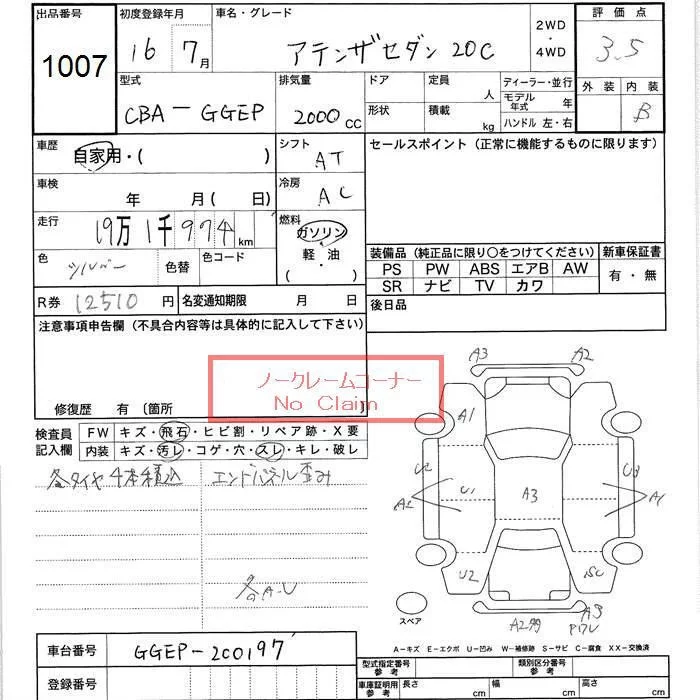 出品番号 初度登録年月 車名・グレード 2WD ・ 4WD 評価点
1007 16 7月 アテンザセダン 20C 3.5
型式 排気量 ドア 定員 人 ディーラー・並行 外装 内装
CBA-GGEP 2000cc 形状 積載 kg モデル年式 年 B
ハンドル 左・右
車歴 自家用・( ) シフト AT セールスポイント (正常に機能するものに限ります)
車検 年 月 ( 日) 冷房 AC
走行 19万1千974km 燃料 ガソリン 軽・油 ( )
色 シルバー 色替 色コード
装備品 (純正品に限り○をつけてください) 新車保証書
PS PW ABS エアB AW 有・無
SR ナビ TV カワ
R券 12510円 名変通知期限 月 日 後日品
注意事項申告欄 (不具合内容等は具体的に記入して下さい)
ノークレームコーナー
No Claim
修復歴 有 〔箇所 〕
検査員記入欄 FW キズ・飛石・ヒビ割・リペア跡・X要
内装 キズ・汚レ・コゲ・穴・スレ・キレ・破レ
冬タイヤ4本積込 エンドパネル歪み
各A・U
A3 A2
A1
U2 U3
A2 U1 A3 A1
U2 SC
スペア A3
A-キズ E-エクボ U-凹み W-補修跡 S-サビ C-腐食 XX-交換済
車台番号 GGEP-200197
型式指定番号 参考 類別区分番号 参考
登録番号 車庫証明用 参考 長さ cm 幅 cm 高さ cm